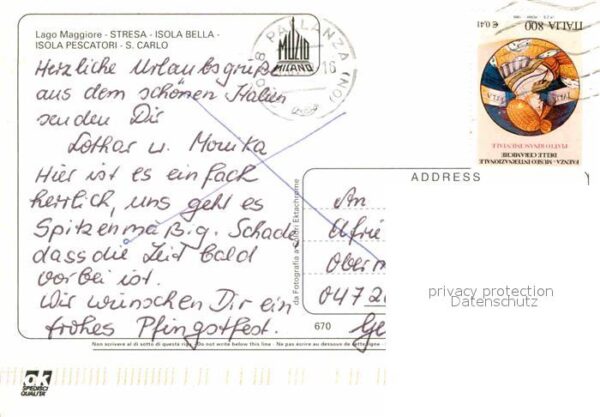 Lago Maggiore - STRESA - ISOLA BELLA -
ISOLA PESCATORI - S. CARLO
MUZIO
MILANO
PALLANZA (NO)
16
€ 0,41
ITALIA 800
PIATTO RINASCIMENTALE
FAENZA - MUSEO INTERNAZIONALE
DELLE CERAMICHE
Herzliche Urlaubsgrüße
aus dem schönen Italien
senden Dir
Lothar u. Monika
Hier ist es einfach
herrlich, uns geht es
Spitzenmäßig. Schade,
dass die Zeit bald
vorbei ist.
Wir wünschen Dir ein
frohes Pfingstfest.
da Fotografia a colori Ektachrome
ADDRESS
An
Ufrie
Oberm
0472
Ge
privacy protection
Datenschutz
670
Non scrivere al di sotto di questa riga - Do not write below this line - Ne pas écrire au dessous de cette ligne
ok
SPEDISCI
QUALITÀ